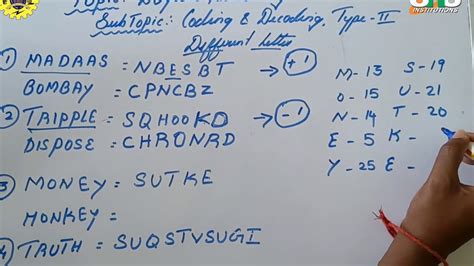 SubTopic: Coding & Decoding, Type-II
Different letter
INSTITUTIONS
1 MADAAS = NBESBT → +1
BOMBAY = CPNCBZ
2 TRIPPLE = SQHOOKD → -1
DISPOSE = CHRONRD
3 MONEY = SUTKE
MONKEY =
4 TRUTH = SUQSTVSUGI
M-13 S-19
O-15 U-21
N-14 T-20
E-5 K-
Y-25 E-